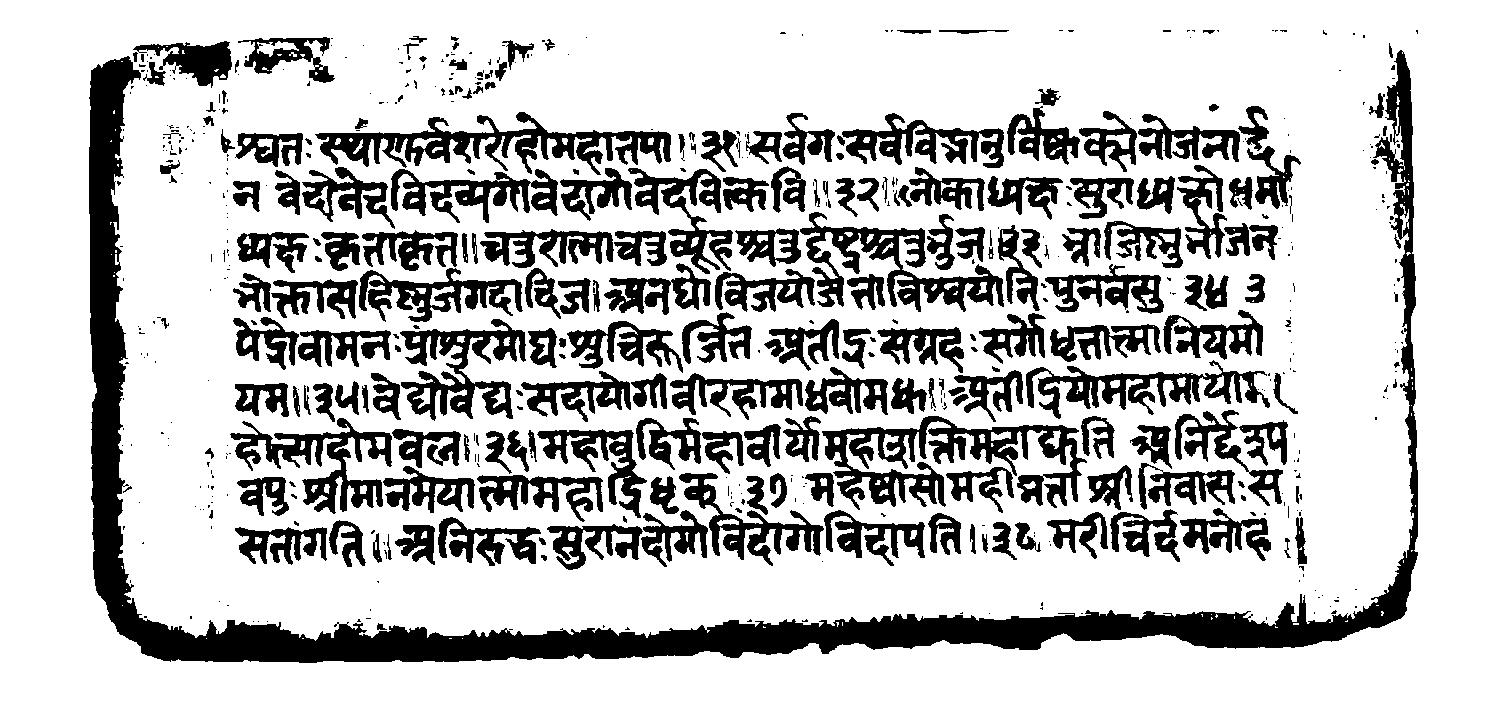 श्वतः स्थाणुर्वरारोहोमहातपा॥३१॥सर्वगःसर्वविद्भानुर्विष्वक्सेनोजनार्द्द
न वेदोवेदविदव्यंगोवेदांगोवेदवित्कवि॥३२॥लोकाध्यक्षःसुराध्यक्षोधर्मा
ध्यक्षःकृताकृत॥चतुरात्माचतुर्व्यूहश्चतुर्द्दंष्ट्रश्चतुर्भुज॥३३ भ्राजिष्णुर्भोजनं
भोक्तासहिष्णुर्जगदादिज।अनघोविजयोजेताविश्वयोनिःपुनर्वसु ३४ उ
पेंद्रोवामनःप्रांशुरमोघःशुचिरूर्जित अतींद्रःसंग्रहःसर्गोधृतात्मानियमो
यम॥३५।वेद्योवैद्यःसदायोगीवीरहामाधवोमधु॥अतींद्रियोमहामायोम
होत्साहोमबल॥३६।महाबुद्धिर्महावीर्योमहाशक्तिमहाद्युति अनिर्द्देश्य
वपुःश्रीमानमेयात्मामहाद्रिधृक् ।३७ महेष्वासोमहीभर्त्ता श्रीनिवासःस
सतांगति॥अनिरुद्धःसुरानंदोगोविंदोगोविदांपति॥३८ मरीचिर्द्दमनोहं